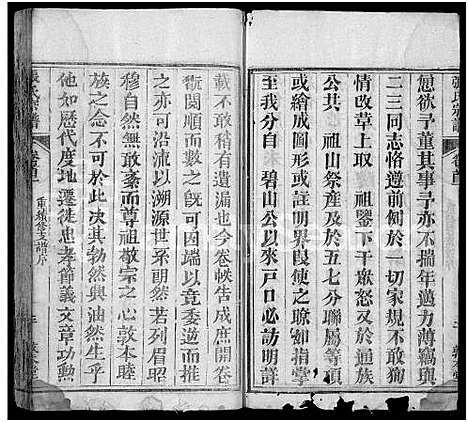 張氏宗譜
卷首
愆欲予董其事予亦不揣年邁力薄竊與
二三同志恪遵前例於一切家規不敢徇
情改草上取　祖鑒下干衆怒又於通族
公共　祖山祭產及於五七分聯屬等項
或繪成圖形或註明界叚使之瞭如指掌
至我分自　碧山公以來戶口必詳登
載不敢稍有遺漏也今卷帙告成庶開卷
翫閱順而數之旣可因端以竟委逆而推
之亦可沿流以溯源世系朗然若列眉昭
穆自然無敢紊而尊祖敬宗之心敦本睦
族之念不於此決其勃然與油然生乎
他如歷代度地遷徙忠孝節義文章功勲
張氏宗譜
卷首
重續修支譜序